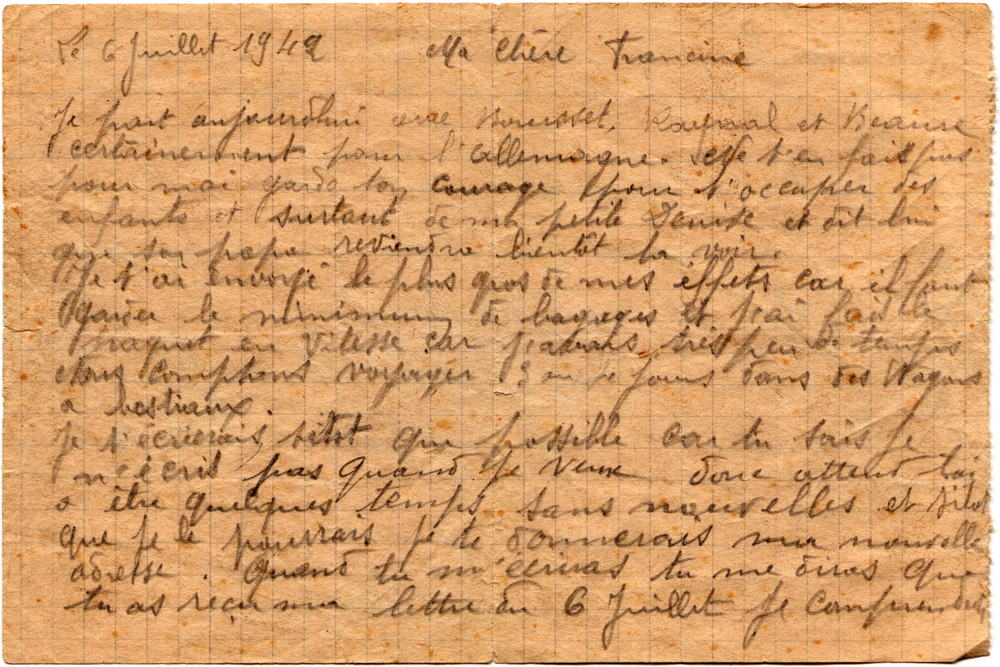 Le 6 Juillet 1942 Ma Chère Francine
Je part aujourd'hui avec Bourisset, et Beaune
certainement pour l'Allemagne. Ne t'en fait pas
pour moi garde ton courage pour t'occuper des
enfants et surtout de ma petite Denise et dit lui
que son papa reviendra bientôt la voir.
Je t'ai envoyé le plus gros de mes effets car il faut
garder le minimum de bagages et j'ai fait le
paquet en vitesse car j'avais très peu de temps
Nous comptons voyager 3 ou 4 jours dans des Wagons
a bestiaux.
Je t'écrierais sitôt que possible car tu sais je
n'écris pas quand je veux donc attend toi
a être quelques temps sans nouvelles et sitôt
que je le pourrais je te donnerais ma nouvelle
adresse. Quand tu m'écriras tu me diras que
tu as reçu ma lettre du 6 Juillet Je comprendrais